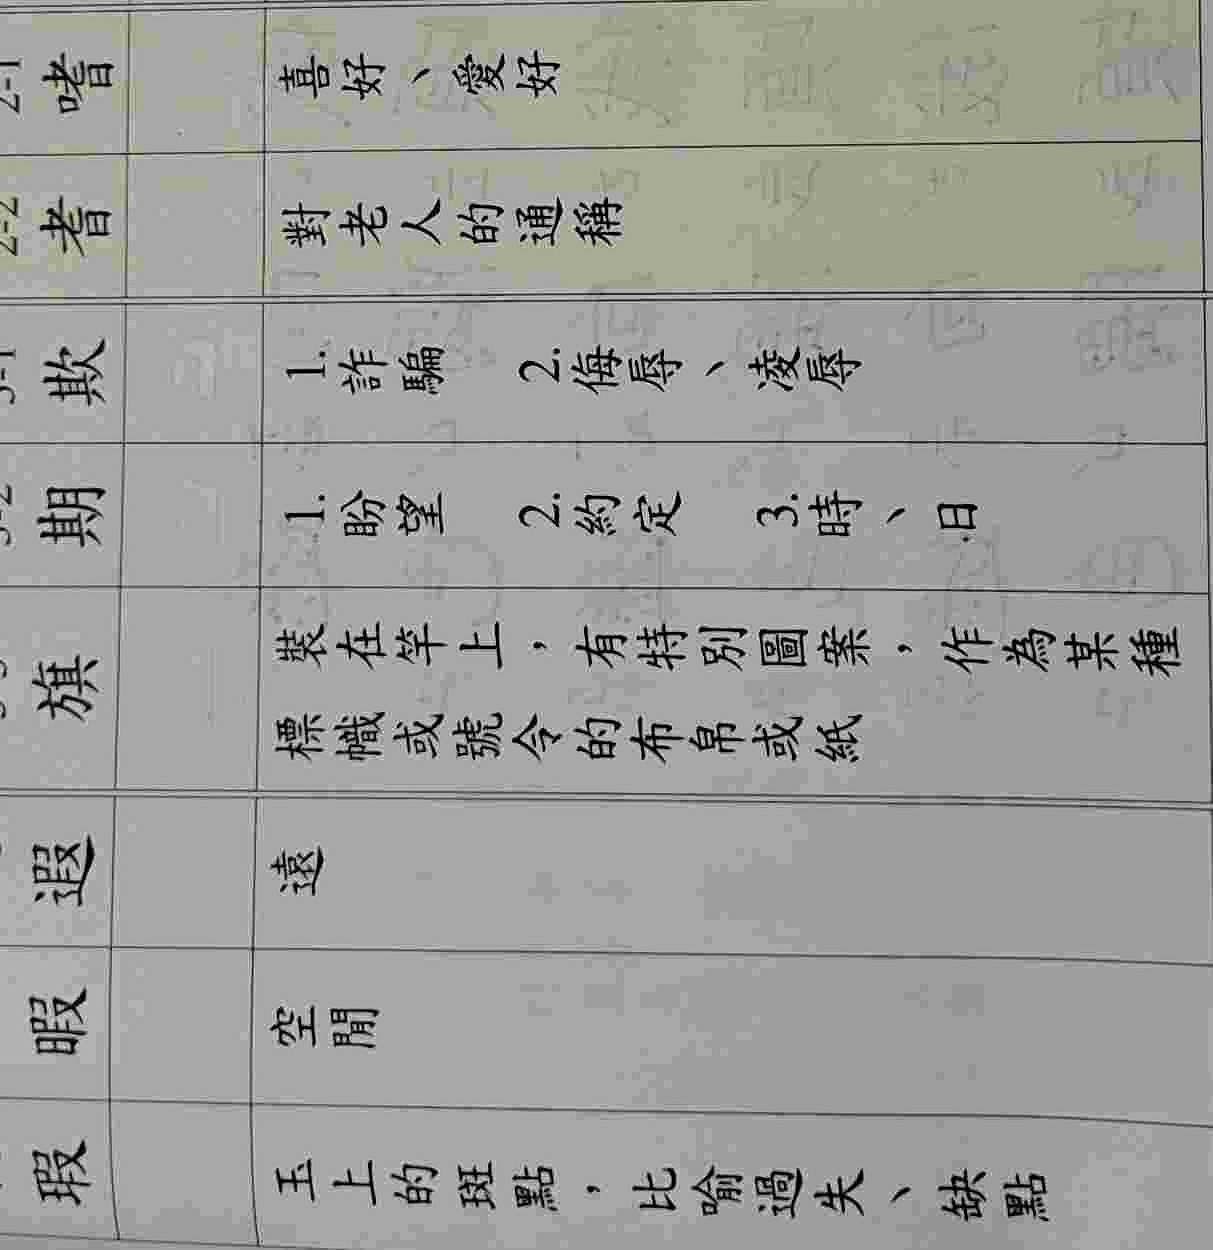 2-1 嗜 喜好、愛好
2-2 耆 對老人的通稱
3-1 欺 1. 詐騙 2. 侮辱、凌辱
3-2 期 1. 盼望 2. 約定 3. 時、日
旗 裝在竿上，有特別圖案，作為某種
標幟或號令的布帛或紙
遐 遠
暇 空閒
瑕 玉上的斑點，比喻過失、缺點